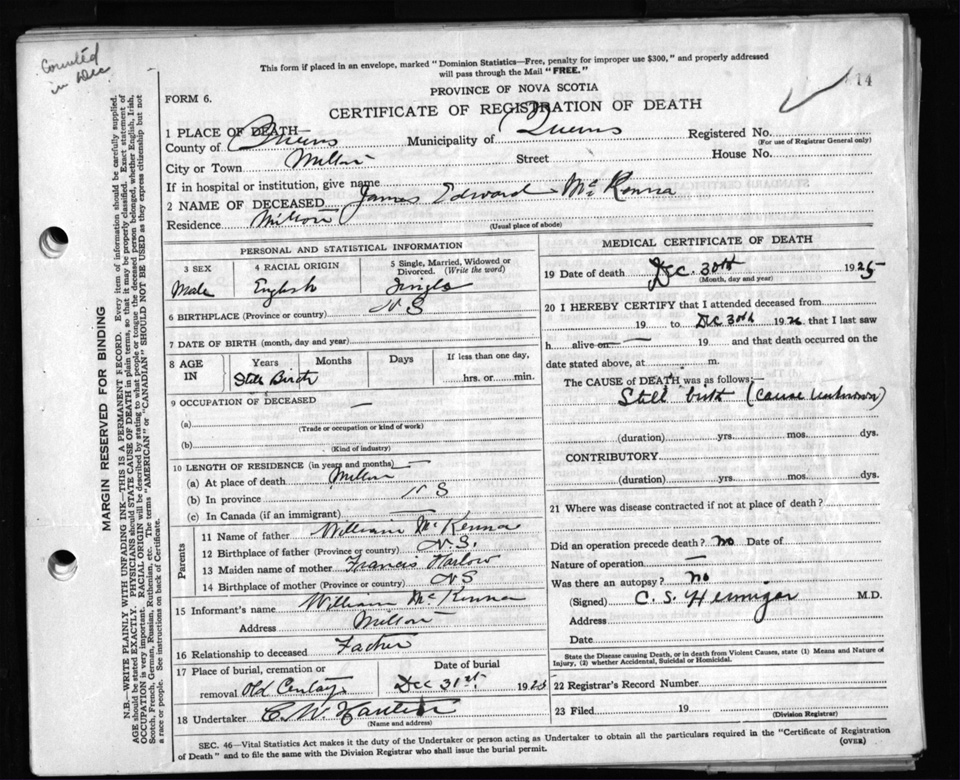 Counted
in Dec
This form if placed in an envelope, marked "Dominion Statistics—Free, penalty for improper use $300," and properly addressed
will pass through the Mail "FREE."
14
PROVINCE OF NOVA SCOTIA
FORM 6.
CERTIFICATE OF REGISTRATION OF DEATH
1 PLACE OF DEATH—
County of Queens Municipality of Queens Registered No.
(For use of Registrar General only)
City or Town Milton Street House No.
If in hospital or institution, give name
2 NAME OF DECEASED James Edward McKenna
Residence Milton
(Usual place of abode)
PERSONAL AND STATISTICAL INFORMATION
3 SEX 4 RACIAL ORIGIN 5 Single, Married, Widowed or
Divorced. (Write the word)
Male English Single
6 BIRTHPLACE (Province or country) N S
7 DATE OF BIRTH (month, day and year)
8 AGE IN Years Months Days If less than one day,
Still Birth hrs. or min.
9 OCCUPATION OF DECEASED —
(a)
(Trade or occupation or kind of work)
(b)
(Kind of industry)
10 LENGTH OF RESIDENCE (in years and months) —
(a) At place of death Milton
(b) In province N S
(c) In Canada (if an immigrant) —
Parents
11 Name of father William McKenna
12 Birthplace of father (Province or country) N.S.
13 Maiden name of mother Francis Harlow
14 Birthplace of mother (Province or country) NS
15 Informant's name William McKenna
Address Milton
16 Relationship to deceased Father
17 Place of burial, cremation or Date of burial
removal Old Dec 31st 1925
18 Undertaker C. W.
(Name and address)
MEDICAL CERTIFICATE OF DEATH
19 Date of death Dec. 30th 1925
(Month, day and year)
20 I HEREBY CERTIFY that I attended deceased from
19 to Dec 30th 1926 that I last saw
h alive on — 19 and that death occurred on the
date stated above, at m.
The CAUSE of DEATH was as follows:—
Still birth (cause unknown)
(duration) yrs. mos. dys.
CONTRIBUTORY
(duration) yrs. mos. dys.
21 Where was disease contracted if not at place of death?
Did an operation precede death? no Date of
Nature of operation —
Was there an autopsy? no
(Signed) C. S. Hennigar M.D.
Address
Date
State the Disease causing Death, or in death from Violent Causes, state (1) Means and Nature of
Injury, (2) whether Accidental, Suicidal or Homicidal.
22 Registrar's Record Number
23 Filed 19
(Division Registrar)
SEC. 46—Vital Statistics Act makes it the duty of the Undertaker or person acting as Undertaker to obtain all the particulars required in the "Certificate of Registration
of Death" and to file the same with the Division Registrar who shall issue the burial permit. (OVER)
MARGIN RESERVED FOR BINDING
N.B.—WRITE PLAINLY WITH UNFADING INK—THIS IS A PERMANENT RECORD. Every item of information should be carefully supplied.
AGE should be stated EXACTLY. PHYSICIANS should STATE CAUSE OF DEATH in plain terms, so that it may be properly classified. Exact statement of
OCCUPATION is very important. RACIAL ORIGIN will be described by stating to what people or tongue the deceased person belonged, whether English, Irish,
Scotch, French, German, Russian, Ruthenian, etc. The terms "AMERICAN" or "CANADIAN" SHOULD NOT BE USED as they express citizenship but not
a race or people. See instructions on back of Certificate.